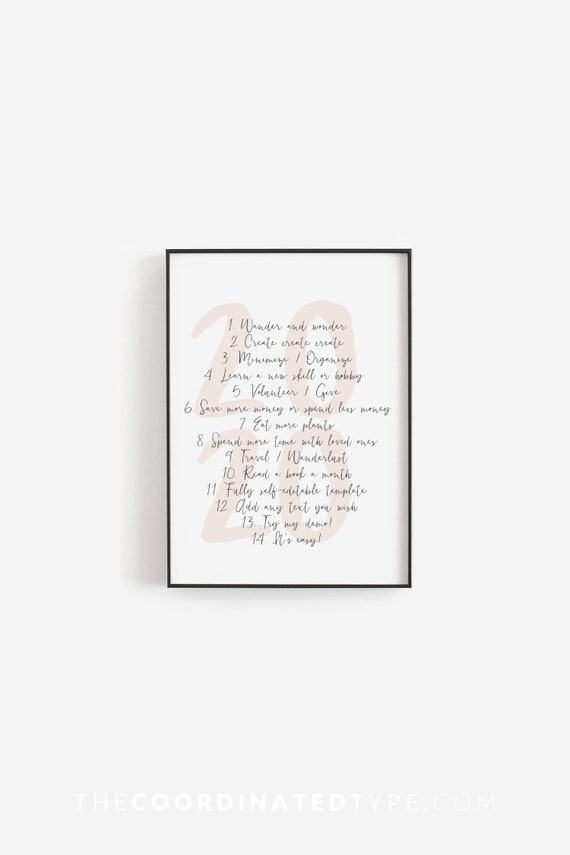 20
20
1. Wander and wonder
2. Create create create
3. Minimize / Organize
4. Learn a new skill or hobby
5. Volunteer / Give
6. Save more money or spend less money
7. Eat more plants
8. Spend more time with loved ones
9. Travel / Wanderlust
10. Read a book a month
11. Fully self-editable template
12. Add any text you wish
13. Try my demo!
14. It's easy!
THECOORDINATEDTYPE.COM